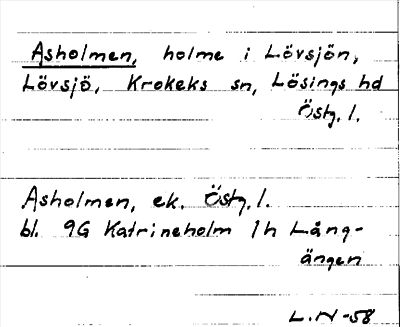 Asholmen, holme i Lövsjön,
Lövsjö, Krokeks sn, Lösings hd
Östg. l.
Asholmen, ek. Östg. l.
bl. 9G Katrineholm 1h Lång-
ängen
L.N-58